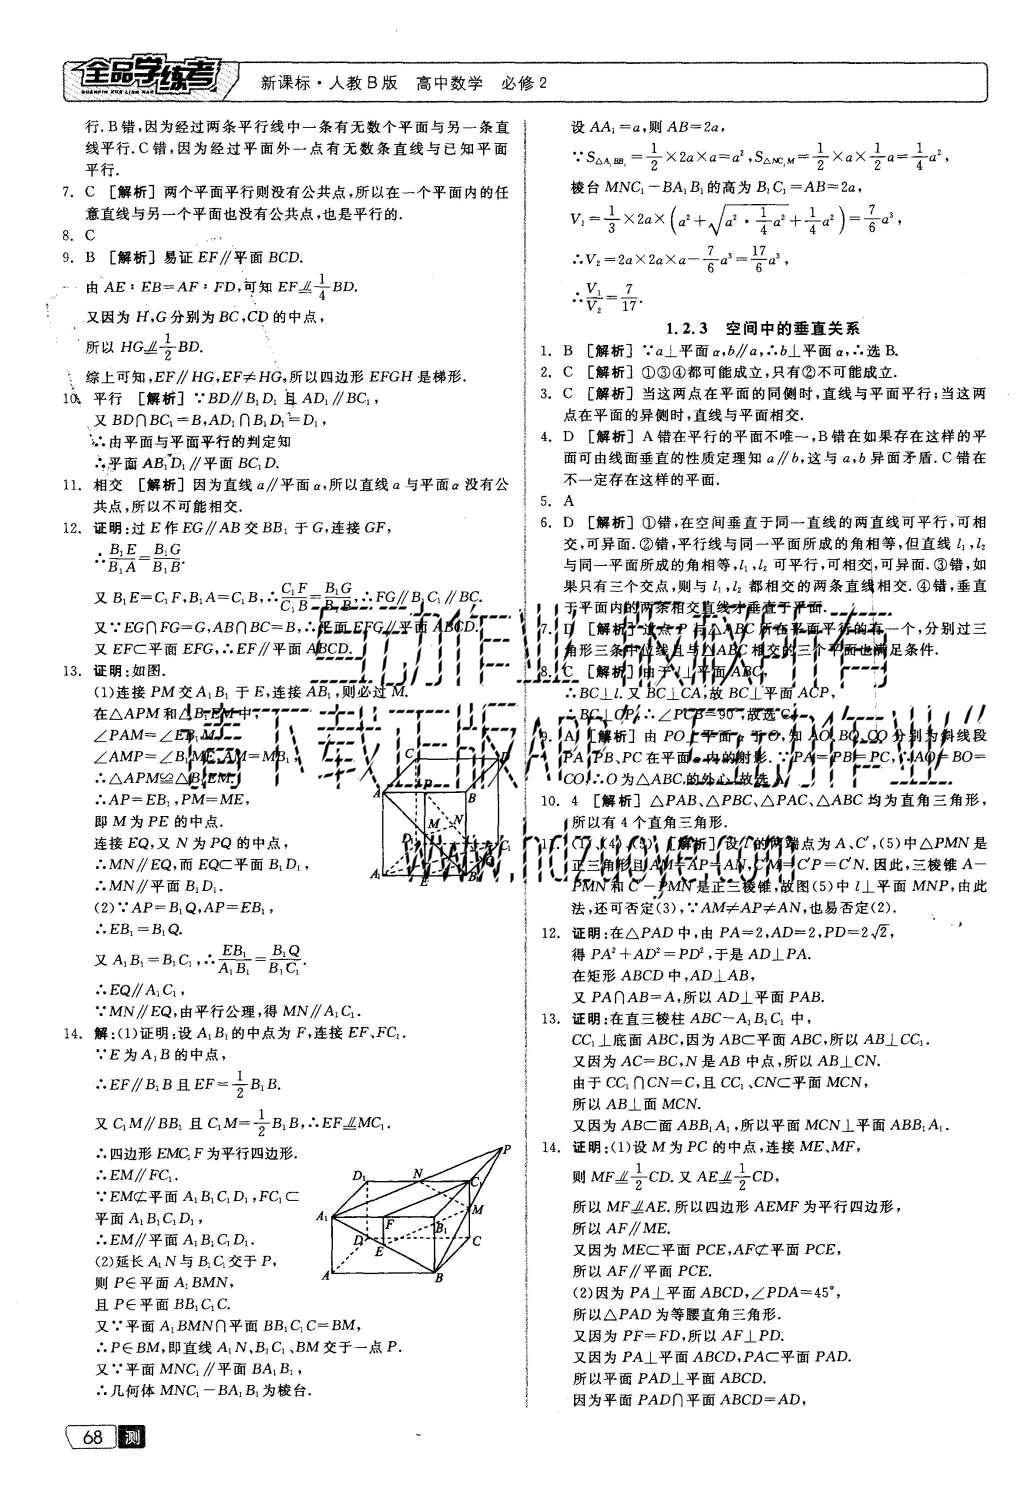 全品学练考
QUANPIN XUE LIAN KAO
新课标·人教B版 高中数学 必修2
行.B错,因为经过两条平行线中一条有无数个平面与另一条直
线平行.C错,因为经过平面外一点有无数条直线与已知平面
平行.
7. C [解析] 两个平面平行则没有公共点,所以在一个平面内的任
意直线与另一个平面也没有公共点,也是平行的.
8. C
9. B [解析] 易证EF∥平面BCD.
由AE∶EB=AF∶FD,可知EF∥=1/4BD.
又因为H,G分别为BC,CD的中点,
所以HG∥=1/2BD.
综上可知,EF∥HG,EF≠HG,所以四边形EFGH是梯形.
10. 平行 [解析] ∵BD∥B₁D₁且AD₁∥BC₁,
又BD∩BC₁=B,AD₁∩B₁D₁=D₁,
∴由平面与平面平行的判定知
∴平面AB₁D₁∥平面BC₁D.
11. 相交 [解析] 因为直线a∥平面α,所以直线a与平面α没有公
共点,所以不可能相交.
12. 证明:过E作EG∥AB交BB₁于G,连接GF,
∴B₁E/B₁A=B₁G/B₁B.
又B₁E=C₁F,B₁A=C₁B,∴C₁F/C₁B=B₁G/B₁B,∴FG∥B₁C₁∥BC.
又∵EG∩FG=G,AB∩BC=B,∴平面EFG∥平面ABCD.
又EF⊂平面EFG,∴EF∥平面ABCD.
13. 证明:如图.
(1)连接PM交A₁B₁于E,连接AB₁,则必过M.
在△APM和△B₁EM中,
∠PAM=∠EB₁M,
∠AMP=∠B₁ME,AM=MB₁,
∴△APM≌△B₁EM.
∴AP=EB₁,PM=ME,
即M为PE的中点.
连接EQ,又N为PQ的中点,
∴MN∥EQ,而EQ⊂平面B₁D₁,
∴MN∥平面B₁D₁.
(2)∵AP=B₁Q,AP=EB₁,
∴EB₁=B₁Q.
又A₁B₁=B₁C₁,∴EB₁/A₁B₁=B₁Q/B₁C₁.
∴EQ∥A₁C₁,
∵MN∥EQ,由平行公理,得MN∥A₁C₁.
14. 解:(1)证明:设A₁B₁的中点为F,连接EF、FC₁.
∵E为A₁B的中点,
∴EF∥B₁B且EF=1/2B₁B.
又C₁M∥BB₁且C₁M=1/2B₁B,∴EF∥=MC₁.
∴四边形EMC₁F为平行四边形.
∴EM∥FC₁.
∵EM⊄平面A₁B₁C₁D₁,FC₁⊂
平面A₁B₁C₁D₁,
∴EM∥平面A₁B₁C₁D₁.
(2)延长A₁N与B₁C₁交于P,
则P∈平面A₁BMN,
且P∈平面BB₁C₁C.
又∵平面A₁BMN∩平面BB₁C₁C=BM,
∴P∈BM,即直线A₁N、B₁C₁、BM交于一点P.
又∵平面MNC₁∥平面BA₁B₁,
∴几何体MNC₁-BA₁B₁为棱台.
68 测
设AA₁=a,则AB=2a,
∵S△A₁BB₁=1/2×2a×a=a²,S△NC₁M=1/2×a×1/2a=1/4a²,
棱台MNC₁-BA₁B₁的高为B₁C₁=AB=2a,
V₁=1/3×2a×(a²+√(a²·1/4a²)+1/4a²)=7/6a³,
∴V₂=2a×2a×a-7/6a³=17/6a³,
∴V₁/V₂=7/17.
1.2.3 空间中的垂直关系
1. B [解析] ∵a⊥平面α,b∥a,∴b⊥平面α,∴选B.
2. C [解析] ①③④都可能成立,只有②不可能成立.
3. C [解析] 当这两点在平面的同侧时,直线与平面平行;当这两
点在平面的异侧时,直线与平面相交.
4. D [解析] A错在平行的平面不唯一,B错在如果存在这样的平
面可由线面垂直的性质定理知a∥b,这与a,b异面矛盾.C错在
不一定存在这样的平面.
5. A
6. D [解析] ①错,在空间垂直于同一直线的两直线可平行,可相
交,可异面.②错,平行线与同一平面所成的角相等,但直线l₁,l₂
与同一平面所成的角相等,l₁,l₂可平行,可相交,可异面.③错,如
果只有三个交点,则与l₁,l₂都相交的两条直线相交.④错,垂直
于平面内的两条相交直线才垂直于平面.
7. D [解析] 过点P与△ABC所在平面平行的有一个,分别过三
角形三条中位线且与△ABC相交的三个平面也满足条件.
8. C [解析] 由于l⊥平面ABC,
∴BC⊥l.又BC⊥CA,故BC⊥平面ACP,
∴BC⊥CP,∴∠PCB=90°,故选C.
9. A [解析] 由PO⊥平面α于O,知AO,BO,CO分别为斜线段
PA,PB,PC在平面α内的射影.∵PA=PB=PC,∴AO=BO=
CO,∴O为△ABC的外心,故选A.
10. 4 [解析] △PAB、△PBC、△PAC、△ABC均为直角三角形,
所以有4个直角三角形.
11. (1)、(4)、(5) [解析] 设l的两端点为A、C′,(5)中△PMN是
正三角形且AM=AP=AN,C′M=C′P=C′N.因此,三棱锥A-
PMN和C′-PMN是正三棱锥,故图(5)中l⊥平面MNP,由此
法,还可否定(3),∵AM≠AP≠AN,也易否定(2).
12. 证明:在△PAD中,由PA=2,AD=2,PD=2√2,
得PA²+AD²=PD²,于是AD⊥PA.
在矩形ABCD中,AD⊥AB,
又PA∩AB=A,所以AD⊥平面PAB.
13. 证明:在直三棱柱ABC-A₁B₁C₁中,
CC₁⊥底面ABC,因为AB⊂平面ABC,所以AB⊥CC₁.
又因为AC=BC,N是AB中点,所以AB⊥CN.
由于CC₁∩CN=C,且CC₁、CN⊂平面MCN,
所以AB⊥面MCN.
又因为AB⊂面ABB₁A₁,所以平面MCN⊥平面ABB₁A₁.
14. 证明:(1)设M为PC的中点,连接ME、MF,
则MF∥=1/2CD.又AE∥=1/2CD,
所以MF∥=AE.所以四边形AEMF为平行四边形,
所以AF∥ME.
又因为ME⊂平面PCE,AF⊄平面PCE,
所以AF∥平面PCE.
(2)因为PA⊥平面ABCD,∠PDA=45°,
所以△PAD为等腰直角三角形.
又因为PF=FD,所以AF⊥PD.
又因为PA⊥平面ABCD,PA⊂平面PAD.
所以平面PAD⊥平面ABCD.
因为平面PAD∩平面ABCD=AD,
www.hdzuoye.com